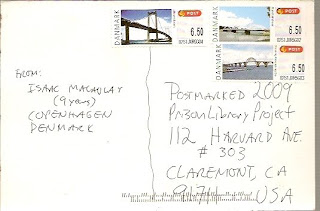 DANMARK
POST
6.50
DANMARK
POST
6.50
DANMARK
POST
6.50
FROM:
ISAAC MACAULAY
(9 years)
COPENHAGEN
DENMARK
POSTMARKED 2009
Prison Library Project
112 HARVARD AVE.
# 303
CLAREMONT, CA
91711 USA